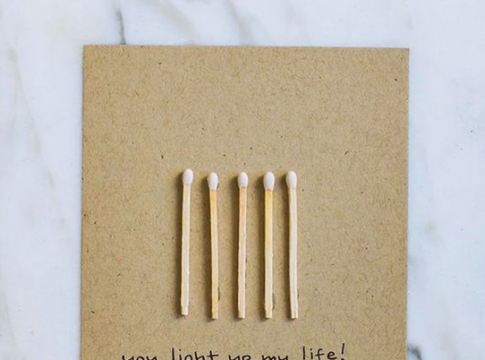 you light up my life!